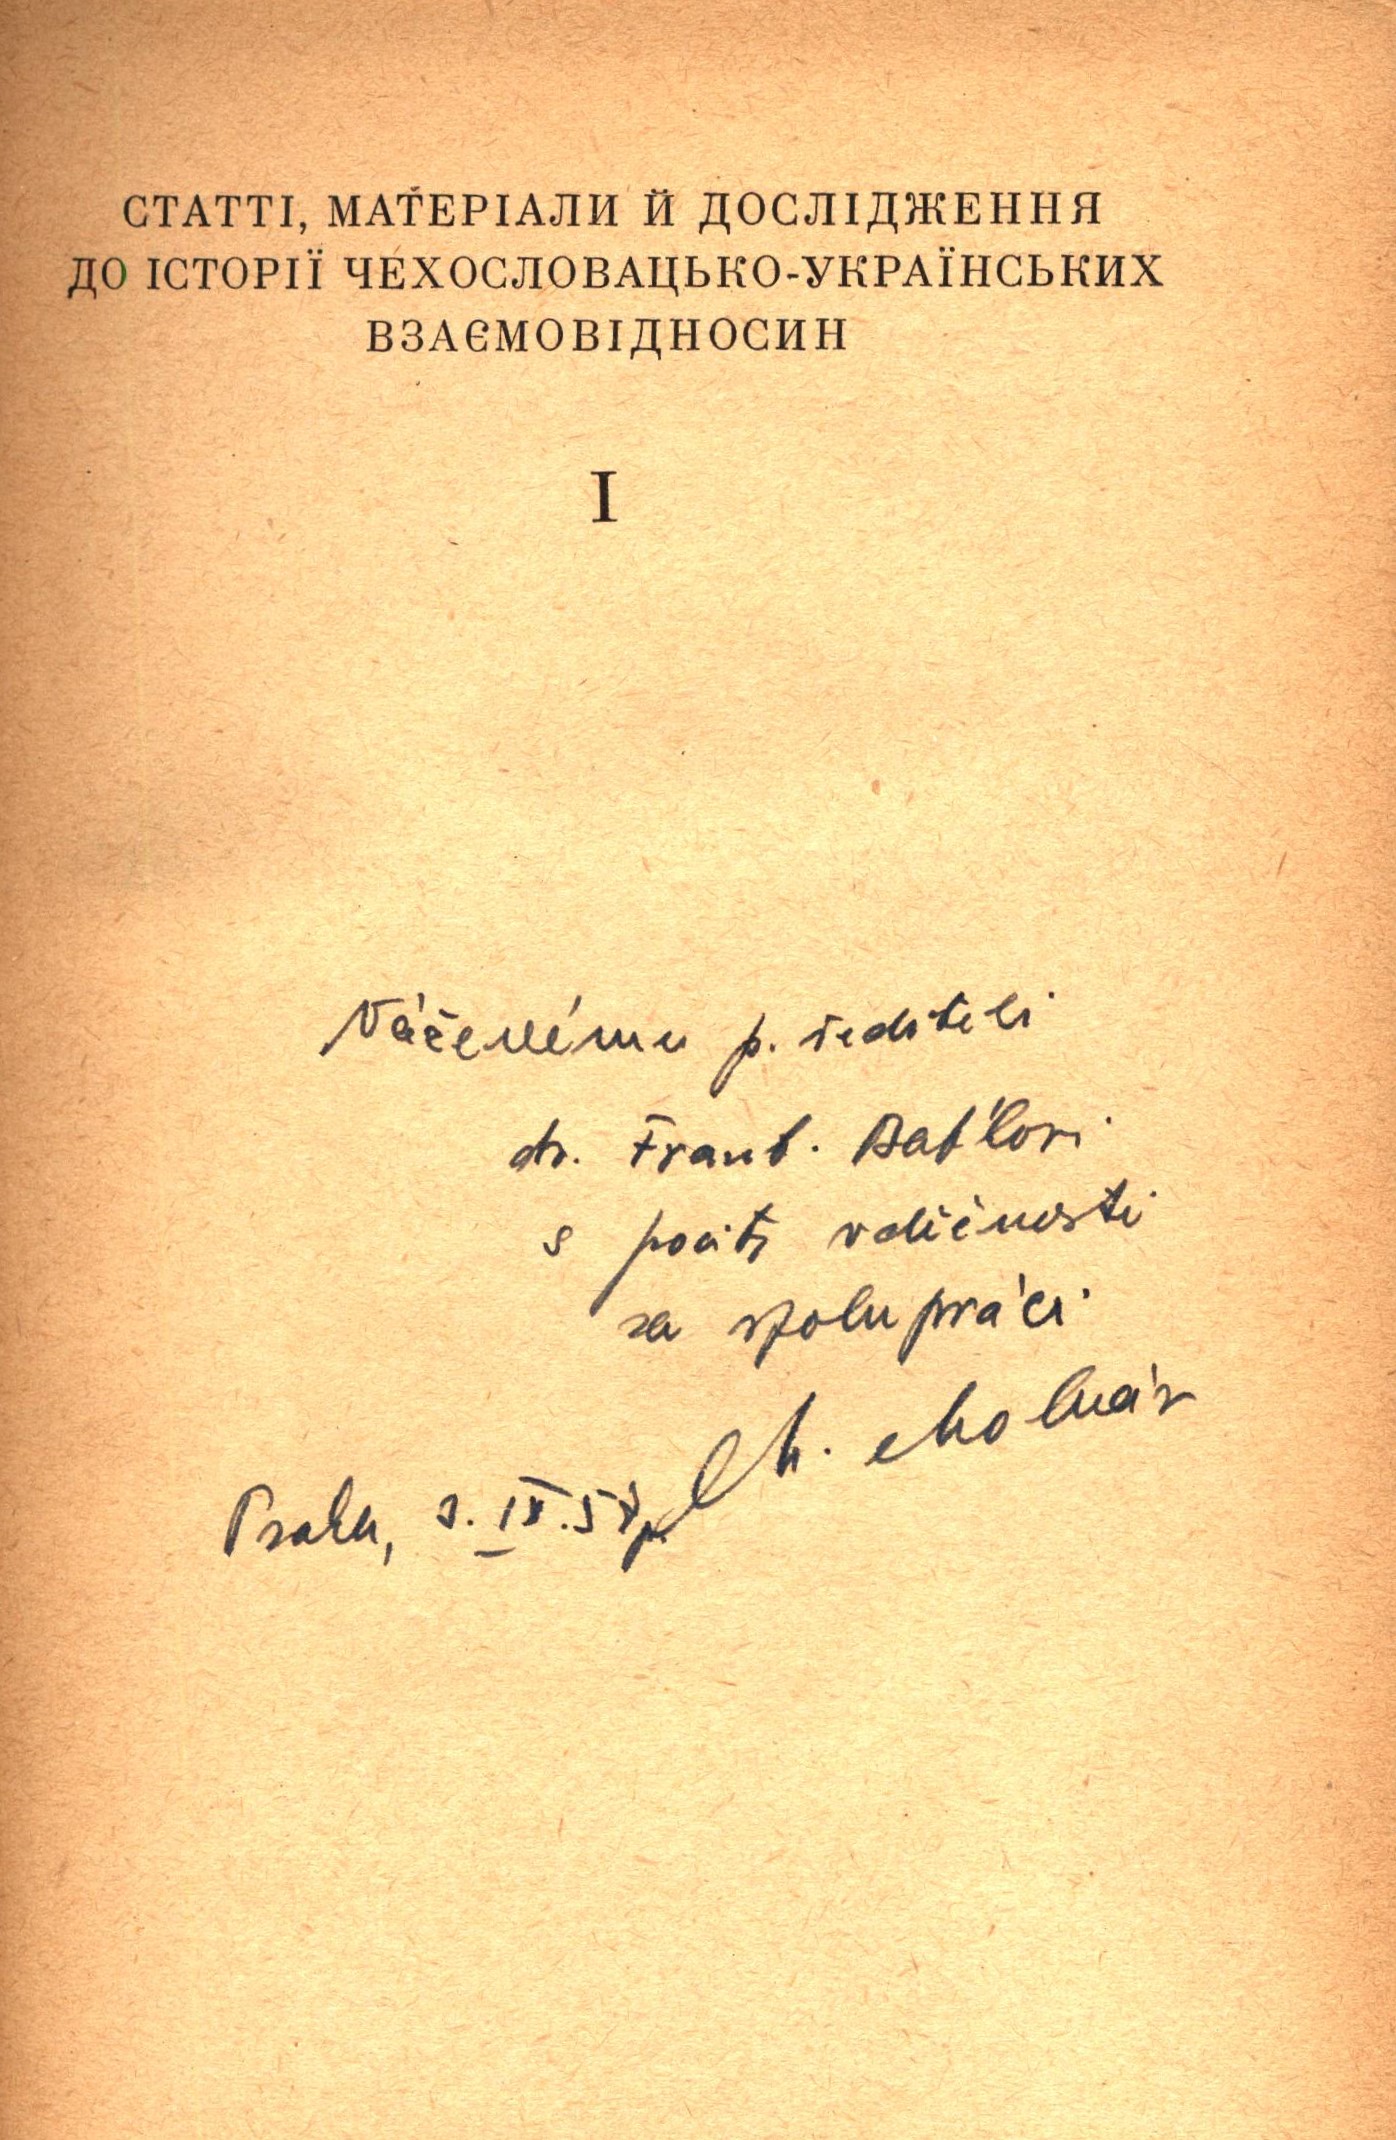 СТАТТІ, МАТЕРІАЛИ Й ДОСЛІДЖЕННЯ
ДО ІСТОРІЇ ЧЕХОСЛОВАЦЬКО-УКРАЇНСЬКИХ
ВЗАЄМОВІДНОСИН
I
Váženému p. řediteli
dr. Frant. Baťlovi
s pocity vděčnosti
za spolupráci
M. Molnár
Praha, 3. IX.